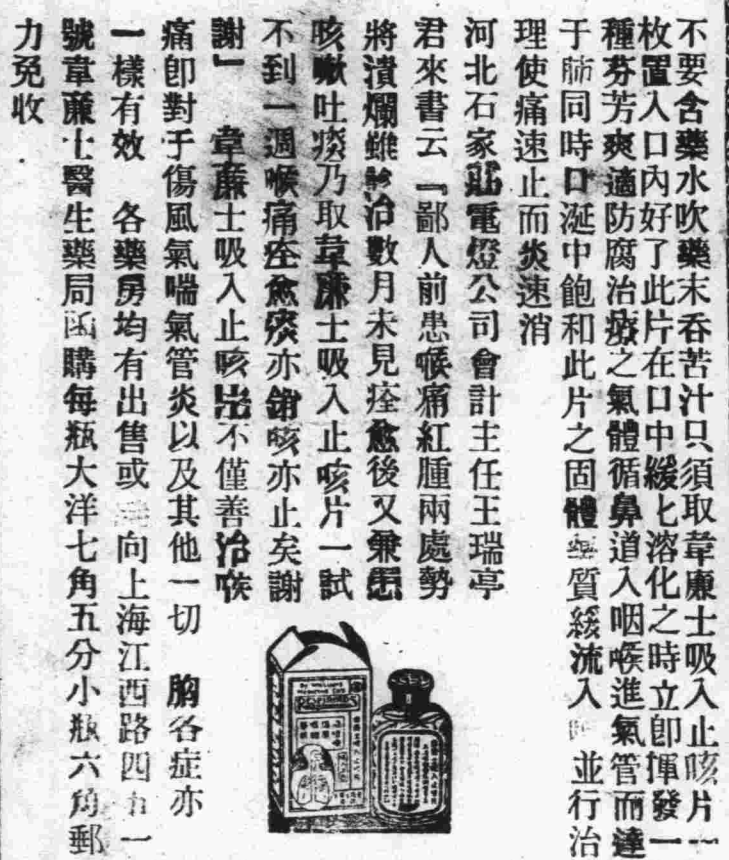 不要含藥水吹藥末吞苦汁只須取韋廉士吸入止咳片一
枚置入口內好了此片在口中緩匕溶化之時立卽揮發一
種芬芳爽適防腐治療之氣體循鼻道入咽喉進氣管而達
于肺同時口涎中飽和此片之固體質緩流入並行治
理使痛速止而炎速消
河北石家莊電燈公司會計主任王瑞亭
君來書云『鄙人前患喉痛紅腫兩處勢
將潰爛雖治數月未見痊愈後又兼患
咳嗽吐痰乃取韋廉士吸入止咳片一試
不到一週喉痛痊愈痰亦銷咳亦止矣謝
謝』 韋廉士吸入止咳片不僅善治喉
痛卽對于傷風氣喘氣管炎以及其他一切 胸各症亦
一樣有效 各藥房均有出售或向上海江西路四五一
號韋廉士醫生藥局函購每瓶大洋七角五分小瓶六角郵
力免收